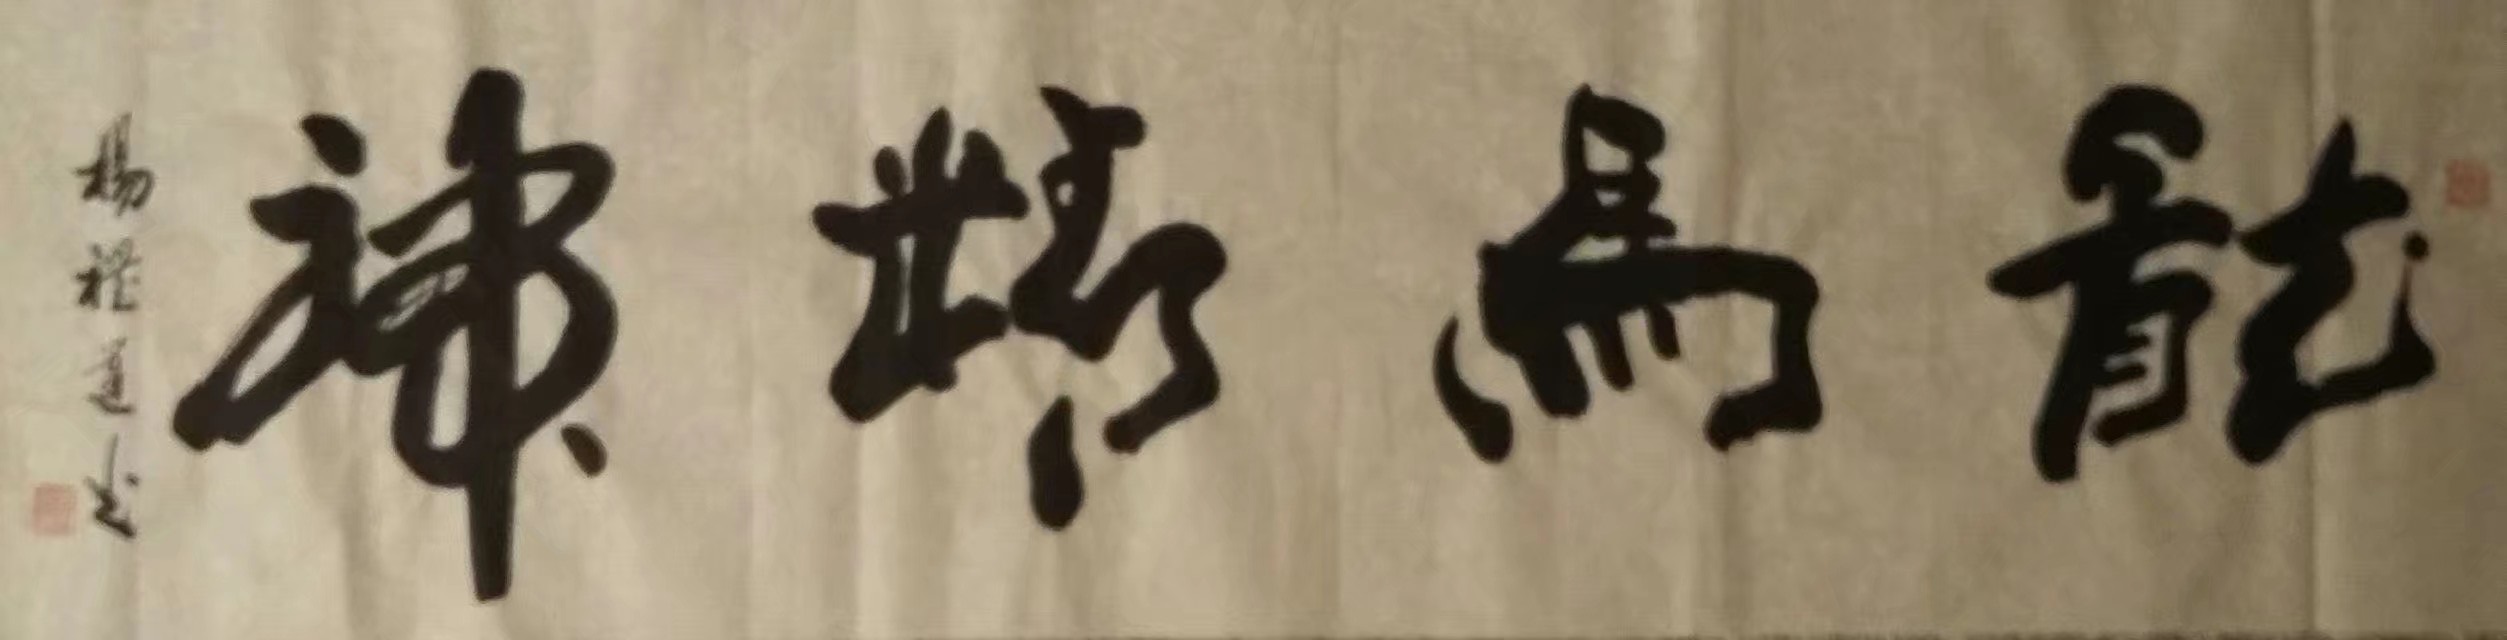 龍馬精神
楊程道書